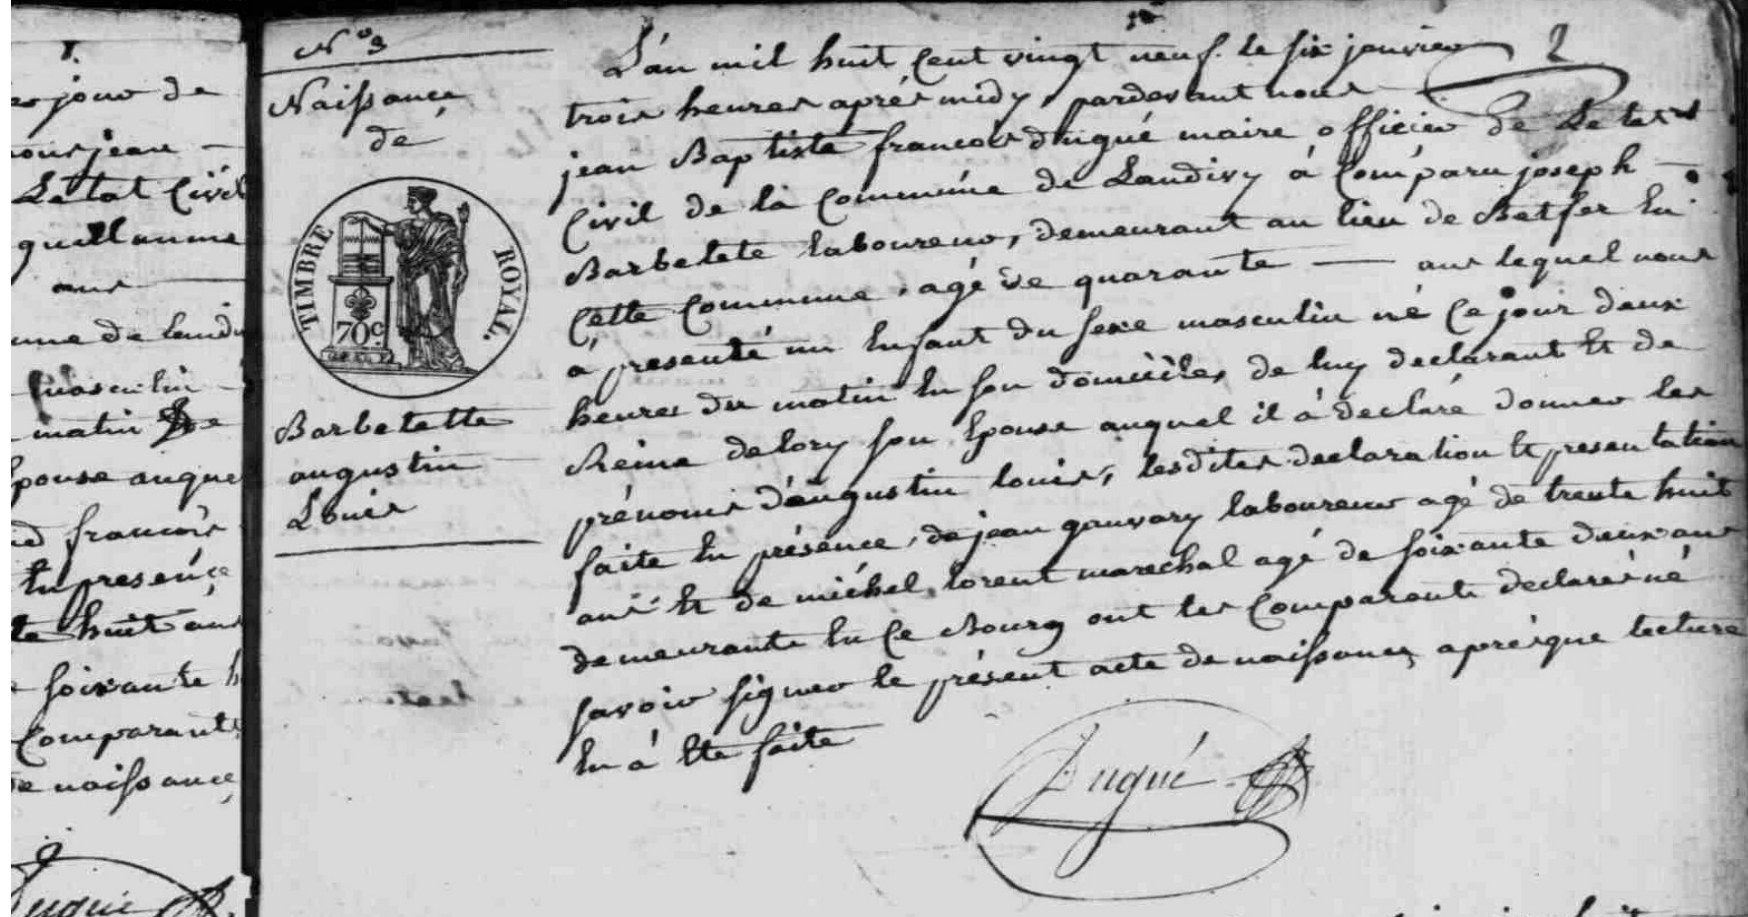 1.
er jour de
nous jean
Letat Civil
guillaume
ans
une de landi
masculin
matin de
Epouse auque
françois
En presençe
te huit ans
soixante h
Comparants
de naissance
Dugué
N.º 3
Naissance
de
TIMBRE ROYAL.
70c
Barbelette
augustin
Louis
2
L'an mil huit Cent vingt neuf. le six janvier
trois heures aprés midy, pardevant nous
jean Baptiste francois dugué maire officier de Letat
Civil de la Commune de Landivy á Comparu joseph
Barbelete laboureur, demeurant au lieu de Betfer En
Cette Commune, agé de quarante — ans lequel nous
á presenté un Enfant du sexe masculin né Ce jour deux
heures du matin En son domicile, de luy declarant Et de
Reine delory son Epouse auquel il á declaré donner les
prénoms d'augustin louis, lesdites declaration Et presentation
faite En présence, de jean gauvary laboureur agé de trente huit
ans Et de michel lorent marechal agé de soixante deux ans
demeurants En Ce Bourg ont les Comparants declarés né
savoir signer le présent acte de naissance, aprés que lecture
En á Eté faite
Dugué